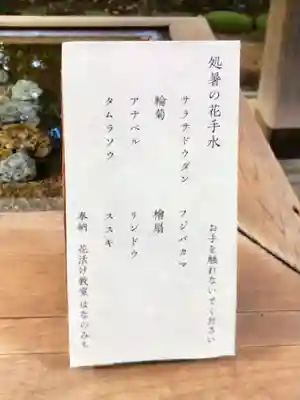 処暑の花手水
お手を触れないでください
サラサドウダン フジバカマ
輪菊 檜扇
アナベル リンドウ
タムラソウ ススキ
奉納 花活け教室 はなのみち